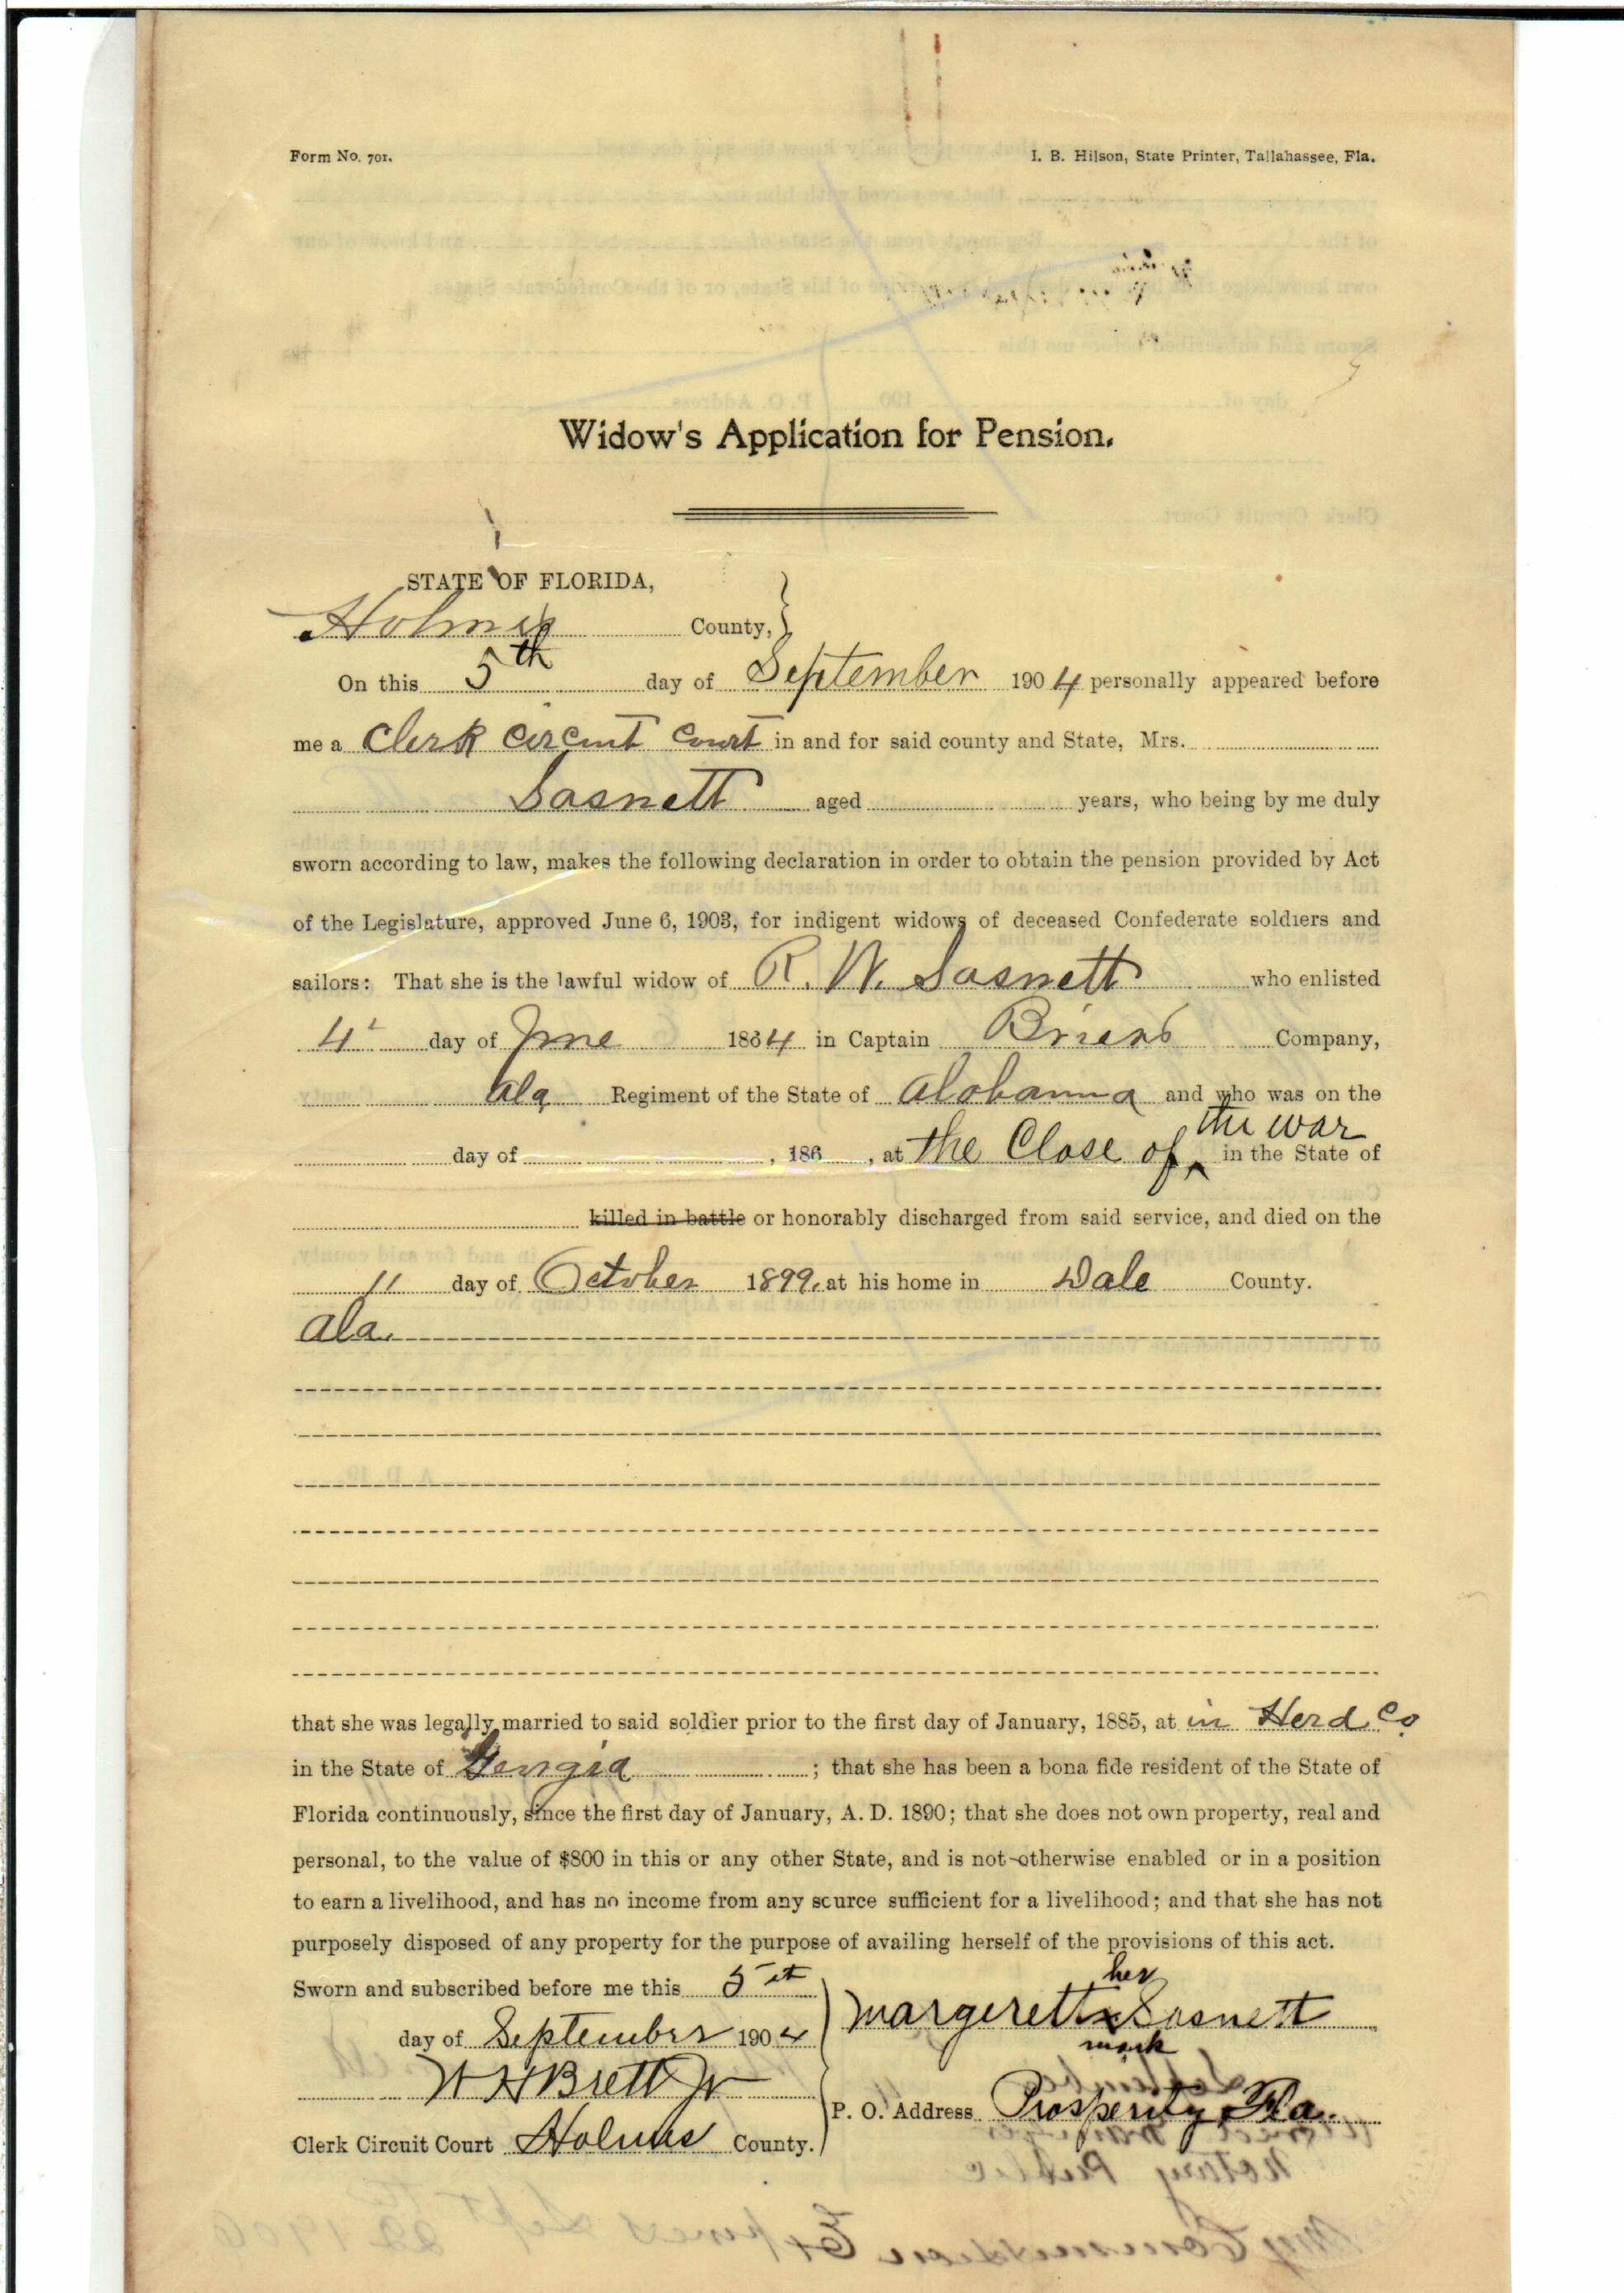 Form No. 701.
I. B. Hilson, State Printer, Tallahassee, Fla.
Widow's Application for Pension.
STATE OF FLORIDA,
Holmes County,
On this 5th day of September 1904 personally appeared before
me a Clerk Circuit Court in and for said county and State, Mrs.
Sasnett aged years, who being by me duly
sworn according to law, makes the following declaration in order to obtain the pension provided by Act
of the Legislature, approved June 6, 1903, for indigent widows of deceased Confederate soldiers and
sailors: That she is the lawful widow of R. W. Sasnett who enlisted
4 day of June 1864 in Captain Company,
Ala Regiment of the State of Alabama and who was on the
day of , 186 , at the Close of the war in the State of
killed in battle or honorably discharged from said service, and died on the
11 day of October 1899, at his home in Dale County.
Ala.
that she was legally married to said soldier prior to the first day of January, 1885, at in Herd Co.
in the State of Georgia ; that she has been a bona fide resident of the State of
Florida continuously, since the first day of January, A. D. 1890; that she does not own property, real and
personal, to the value of $800 in this or any other State, and is not otherwise enabled or in a position
to earn a livelihood, and has no income from any source sufficient for a livelihood; and that she has not
purposely disposed of any property for the purpose of availing herself of the provisions of this act.
Sworn and subscribed before me this 5th
day of September 1904
W H Brett Jr
Clerk Circuit Court Holmes County.
her
Margerett x Sasnett
mark
P. O. Address Prosperity, Fla.